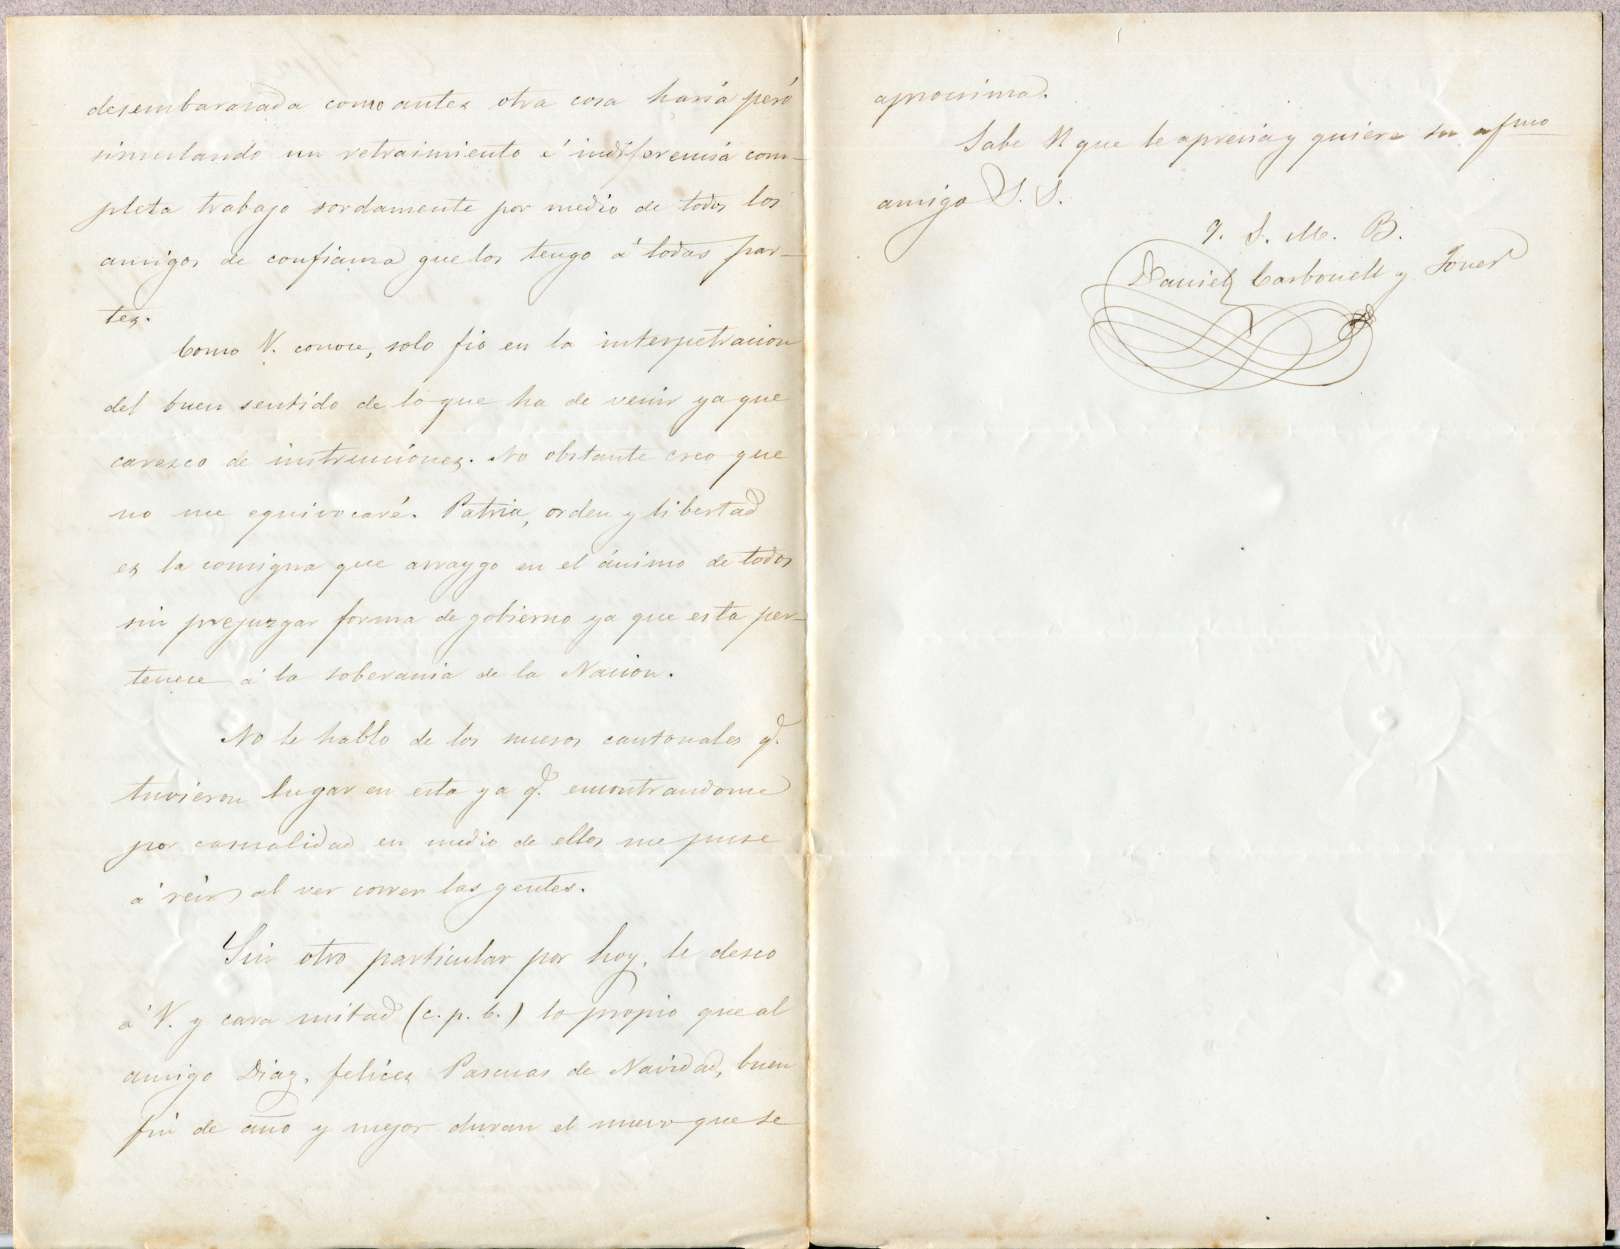 desembarasada como antes otra cosa haria peró
simulando un retraimiento é indiferencia com-
pleta trabajo sordamente por medio de todos los
amigos de confianza que los tengo á todas par-
tes.
Como V. conoce, solo fio en la interpetracion
del buen sentido de lo que ha de venir ya que
caresco de instrucciónes. No obstante creo que
no me equivocaré. Patria, orden y libertad
es la consigna que arraygo en el ánimo de todos
sin prejuzgar forma de gobierno ya que esta per-
tenece á la soberania de la Nacion.
No le hablo de los sucesos cantonales q.
tuvieron lugar en esta ya q. encontrandome
por casualidad en medio de ellos me puse
á reir al ver correr las gentes.
Sin otro particular por hoy, le deseo
á V. y cara mitad (c. p. b.) lo propio que al
amigo Diaz, felices Pascuas de Navidad, buen
fin de año y mejor duran el nuevo que se
aproxima.
Sabe V. que le aprecia y quiere su afmo
amigo S. S.
Q. S. M. B.
Daniel Carbonell y Jover